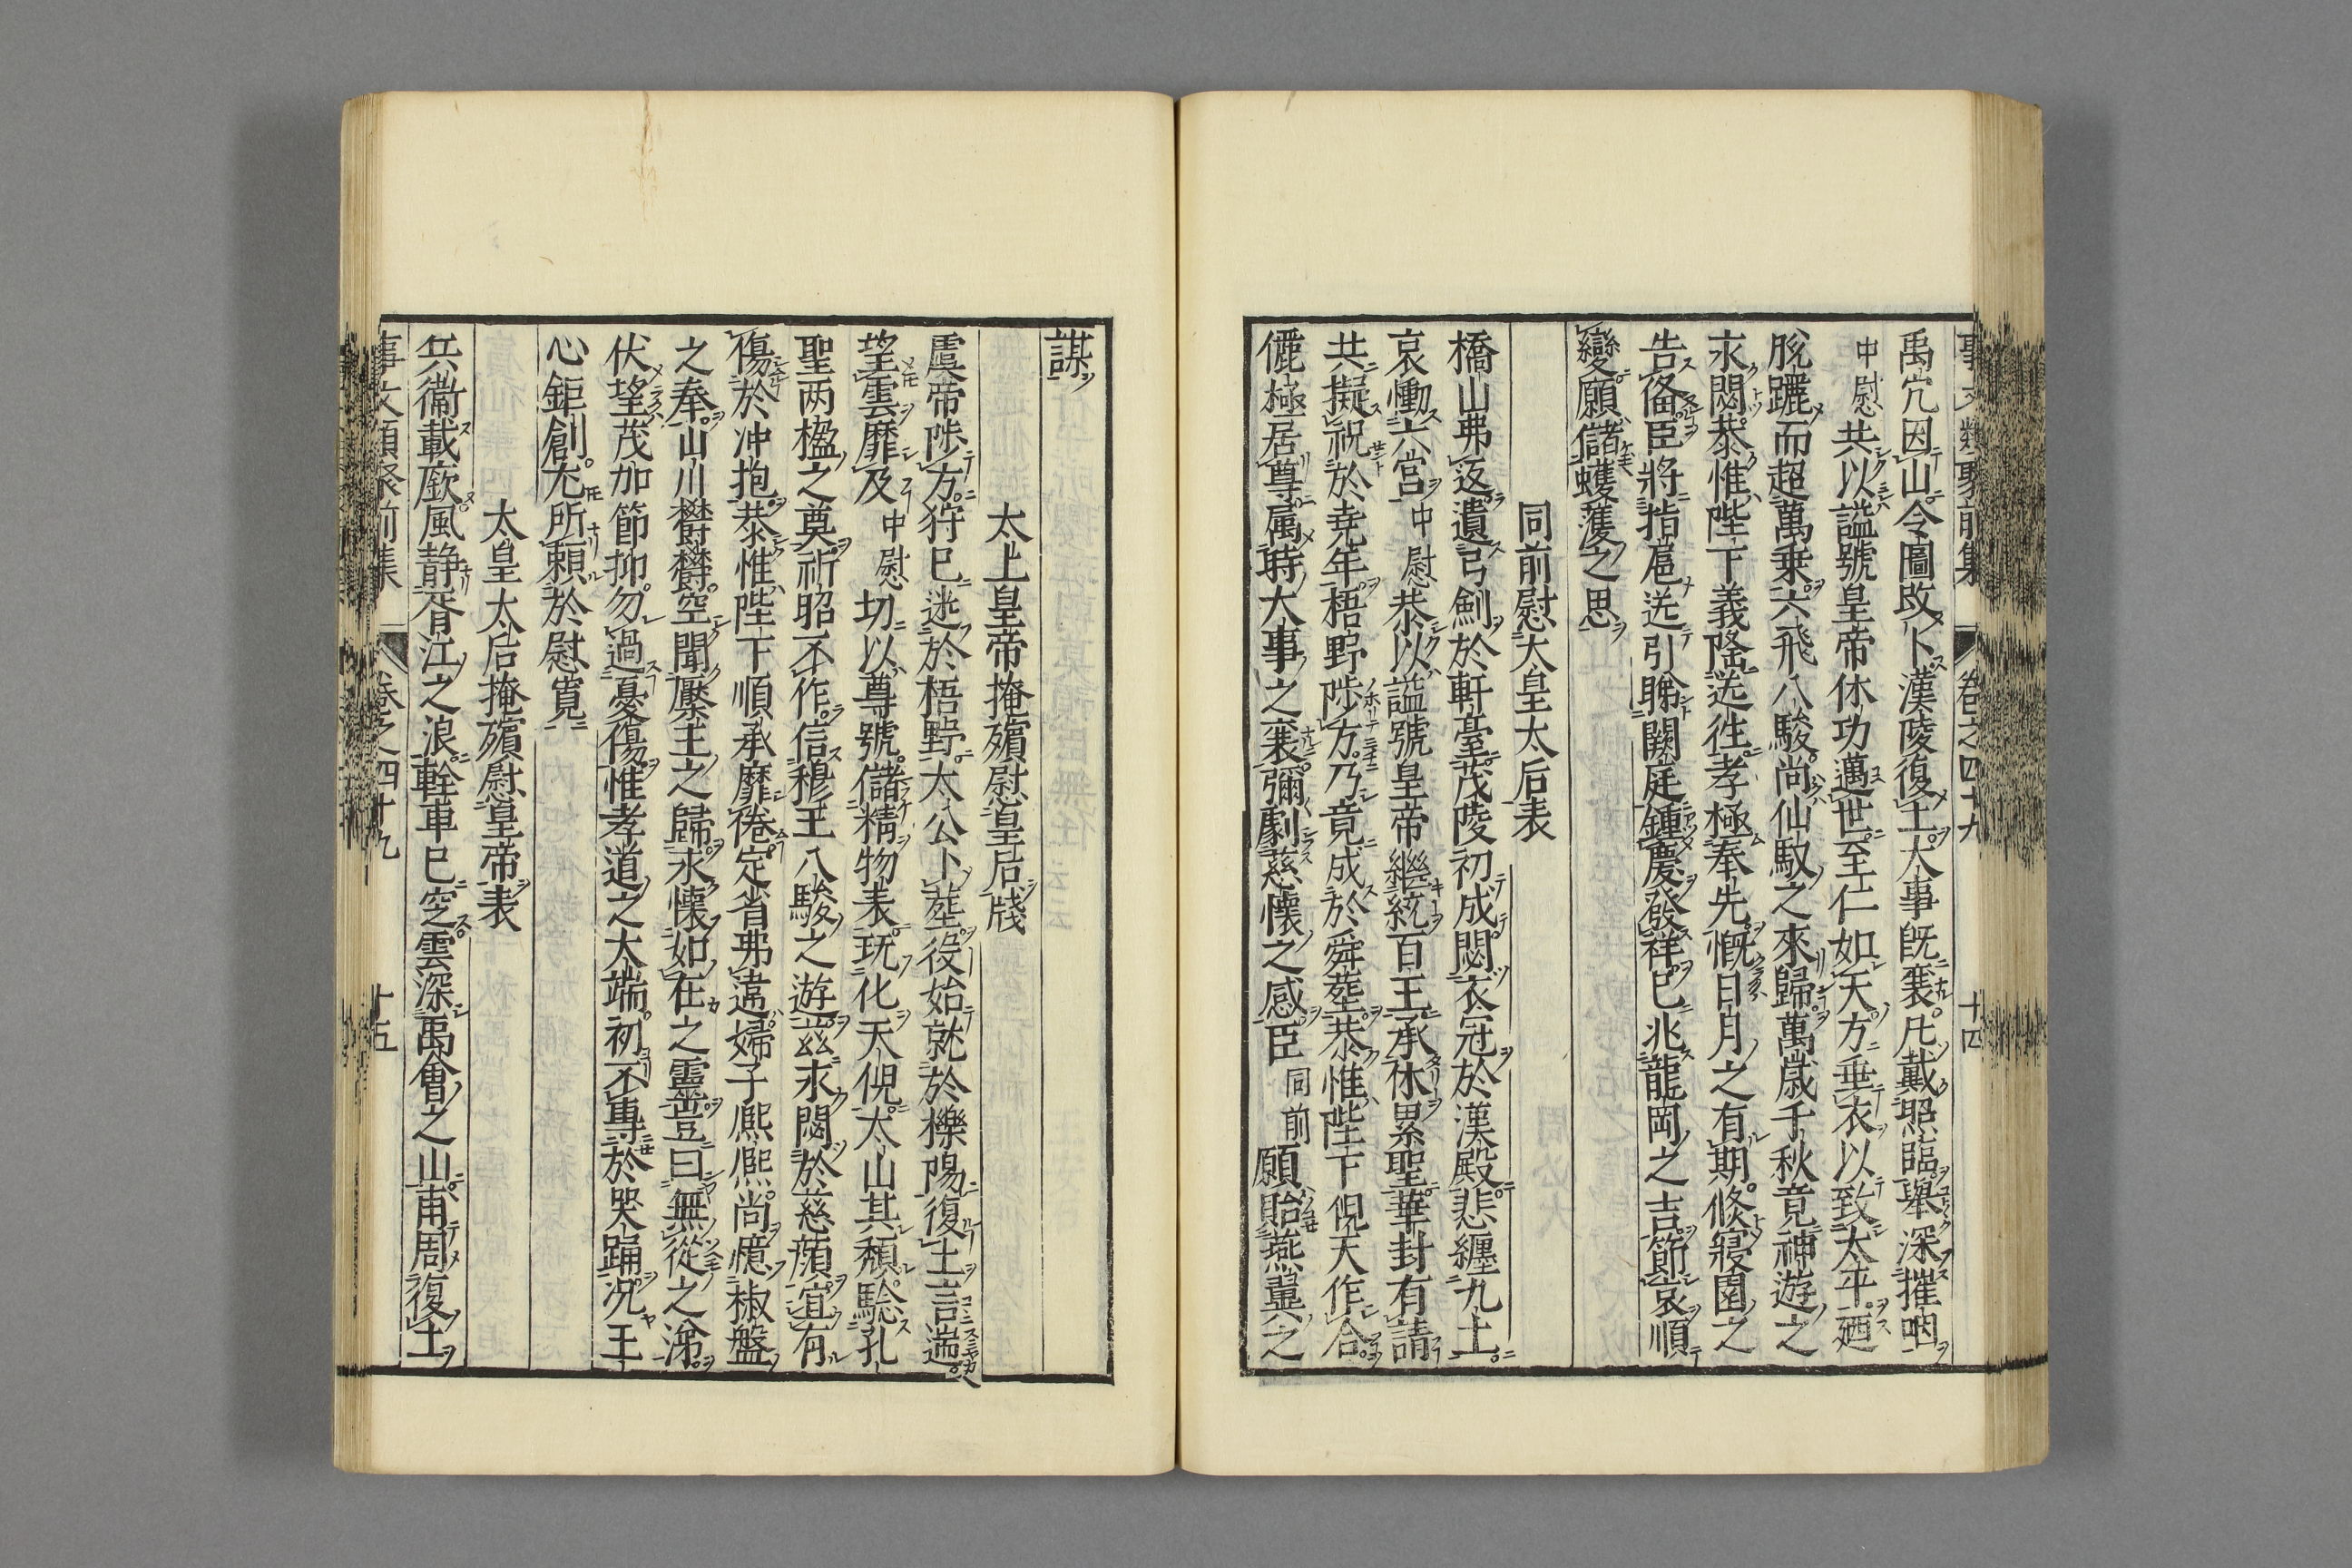 事文類聚前集 卷之四十九 十四
禹穴因山令圖改卜漢陵復土大事既襄凡戴照臨舉深摧咽
中慰共以謚號皇帝休功邁世至仁如天方垂衣以致太平廼
脫躧而超萬乗六飛八駿尚仙馭之來歸萬歲千秋竟神遊之
永閟恭惟陛下義隆送往孝極奉先慨日月之有期倏寢園之
告備臣將指扈送引睇闕庭鍾慶發祥已兆龍岡之吉節哀順
變願儲蠖濩之思
同前慰大皇太后表
橋山弗返遺弓劍於軒臺茂陵初成閟衣冠於漢殿悲纏九土
哀慟六宮中慰恭以謚號皇帝繼統百王承休累聖華封有請
共擬祝於堯年梧野陟方乃竟成於舜塟恭惟陛下俔天作合
儷極居尊属時大事之襄彌劇慈懷之感臣同前願貽燕翼之
謀
太上皇帝掩殯慰皇后牋
虞帝陟方狩已逃於梧野太公卜塟役始就於櫟陽復土言遄
望雲靡及中慰切以尊號儲精物表玩化天俔太山其頹騐孔
聖两楹之奠祈昭不作信穆王八駿之遊兹永閟於慈顔宜有
傷於冲抱恭惟陛下順承靡倦定省弗違婦子熈熈尚憶椒盤
之奉山川欝欝空聞縻王之歸永懷如在之靈豈曰無從之涕
伏望茂加節抑勿過憂傷惟孝道之大端初不專於哭踊况王
心鉅創尤所頼於慰寬
太皇太后掩殯慰皇帝表
兵衞載厳風静胥江之浪輇車已空雲深禹會之山甫周復土
事文類聚前集 卷之四十九 十五